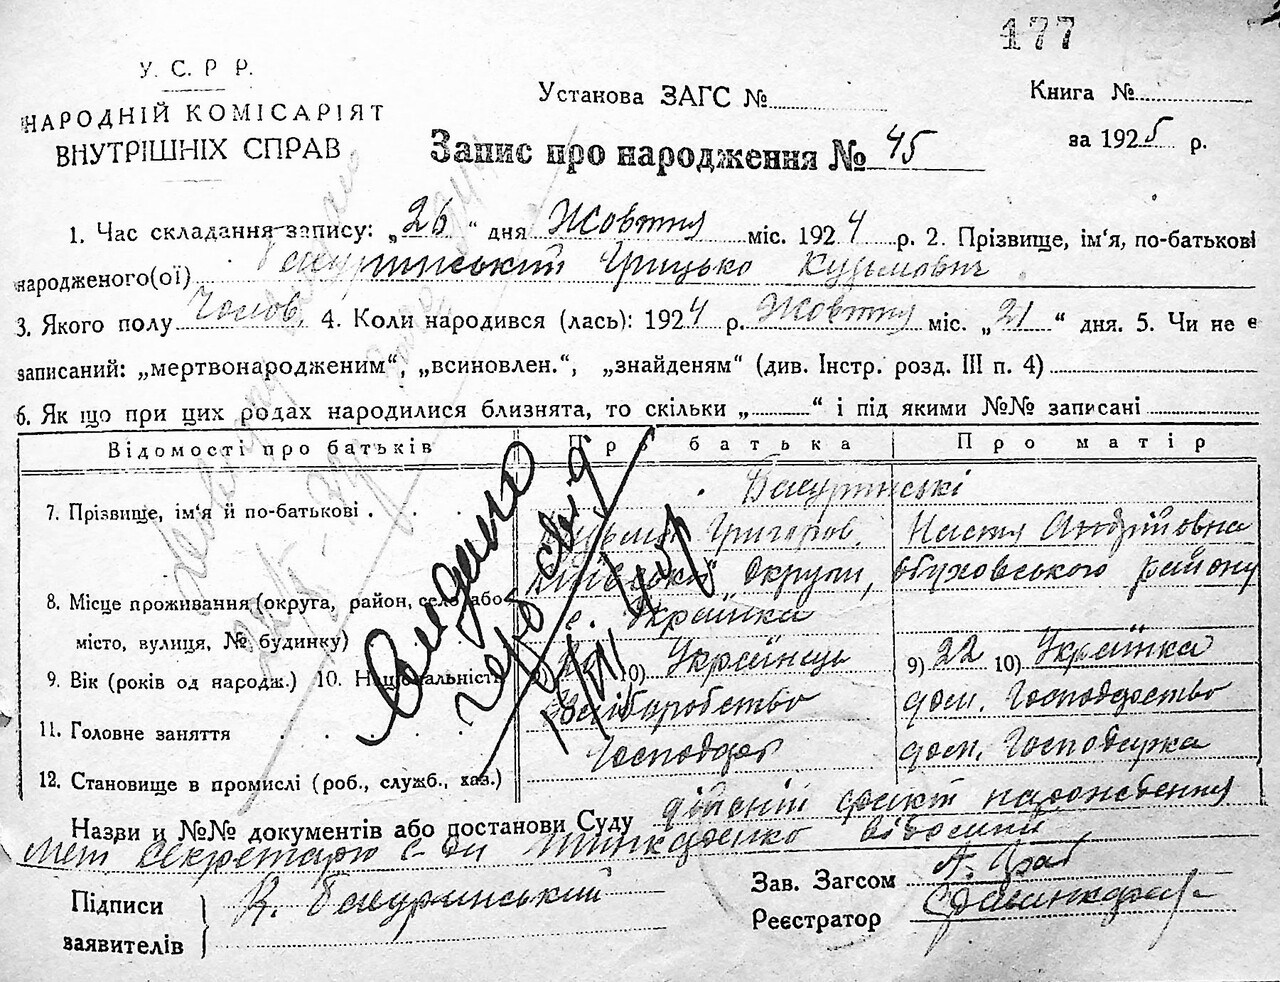 177
У. С. Р. Р.
НАРОДНІЙ КОМІСАРІЯТ
ВНУТРІШНІХ СПРАВ
Установа ЗАГС №
Книга №
Запис про народження № 45
за 1925 р.
1. Час складання запису: „26“ дня Жовтня міс. 1924 р. 2. Прізвище, ім'я, по-батькові
народженого(ої) Грицько Кузьмович
3. Якого полу Чолов. 4. Коли народився (лась): 1924 р. Жовтня міс. „21“ дня. 5. Чи не є
записаний: „мертвонародженим“, „всиновлен.“, „знайденям“ (див. Інстр. розд. III п. 4)
6. Як що при цих родах народилися близнята, то скільки „ “ і під якими №№ записані
Відомості про батьків Про батька Про матір
7. Прізвище, ім'я й по-батькові
Кузьма Григоров. Настя Андрійовна
Київської округи, Обуховського району
8. Місце проживання (округа, район, село або
с. Українка
місто, вулиця, № будинку)
9. Вік (років од народж.) 10. Національність 10) Українець 9) 22 10) Українка
11. Головне заняття Хліборобство дом. Господарство
12. Становище в промислі (роб., служб., хаз.) Господар дом. Господарка
Видано
Назви и №№ документів або постанови Суду факт народження
секретарю відомий
Підписи
заявителів
К.
Зав. Загсом
Реєстратор